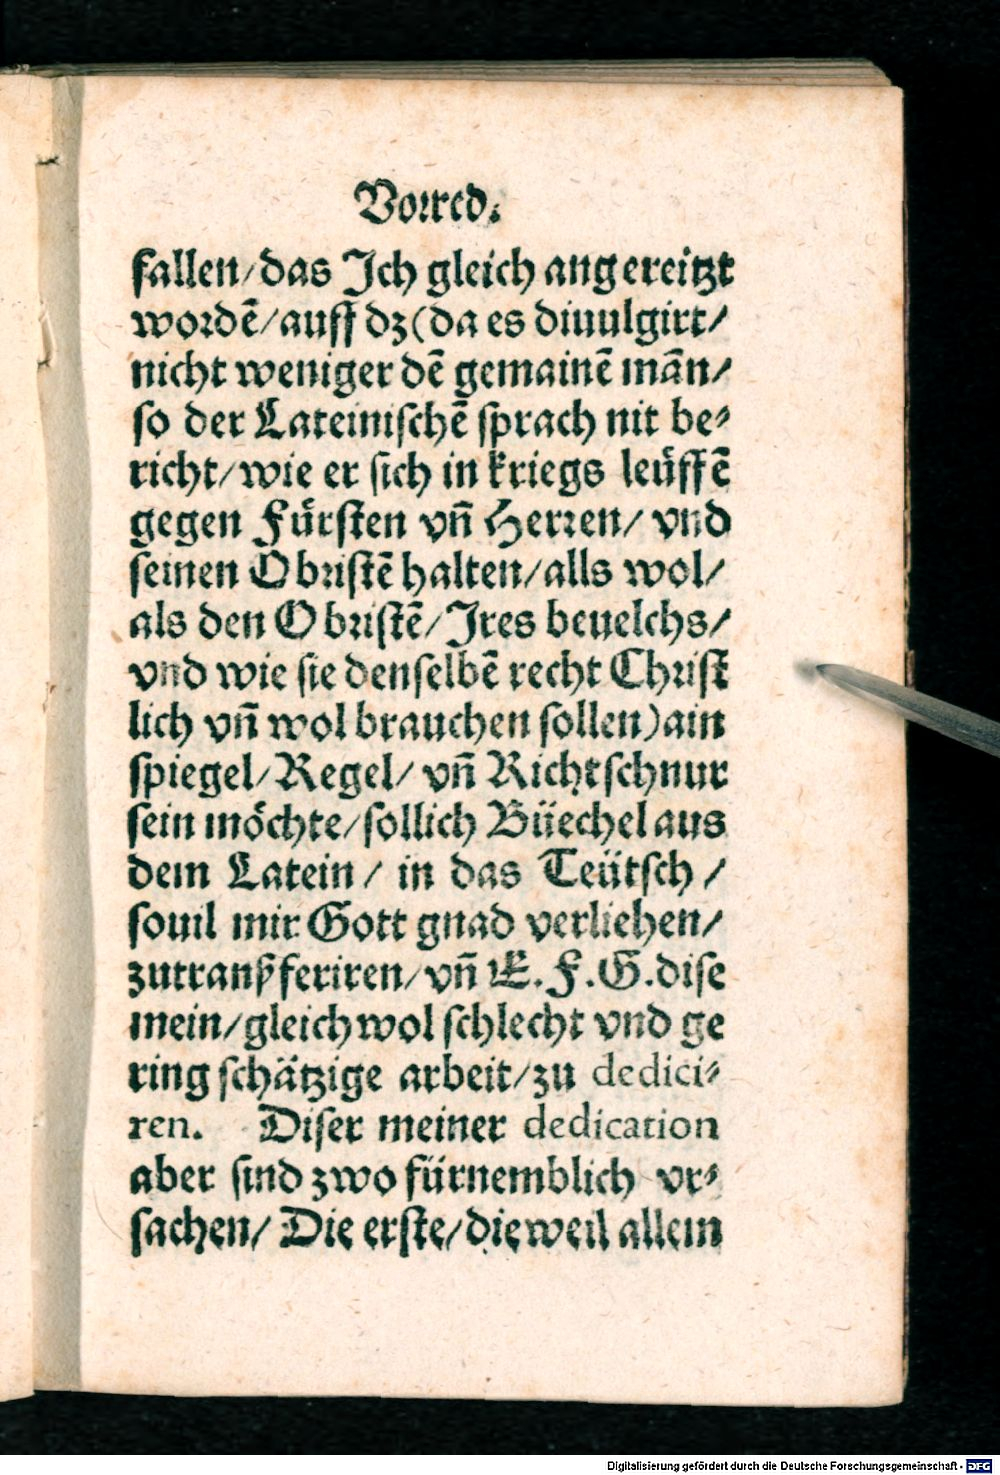 Vorred.
fallen/das Ich gleich angereitzt
wordẽ/auff dz(da es diuulgirt/
nicht weniger dẽ gemainẽ mãn/
so der Lateinischẽ sprach nit be⸗
richt/wie er sich in kriegs leüffẽ
gegen Fürsten vñ Herren/ vnd
seinen Obristẽ halten/alls wol/
als den Obristẽ/Ires beuelchs/
vnd wie sie denselbẽ recht Christ
lich vñ wol brauchen sollen)ain
spiegel/Regel/ vñ Richtschnur
sein möchte/sollich Büechel aus
dem Latein / in das Teütsch /
souil mir Gott gnad verliehen/
zutranßferiren/vñ E.F.G.dise
mein/gleichwol schlecht vnd ge
ring schätzige arbeit/zu dedici⸗
ren. Diser meiner dedication
aber sind zwo fürnemblich vr⸗
sachen/ Die erste/dieweil allein
Digitalisierung gefördert durch die Deutsche Forschungsgemeinschaft - DFG